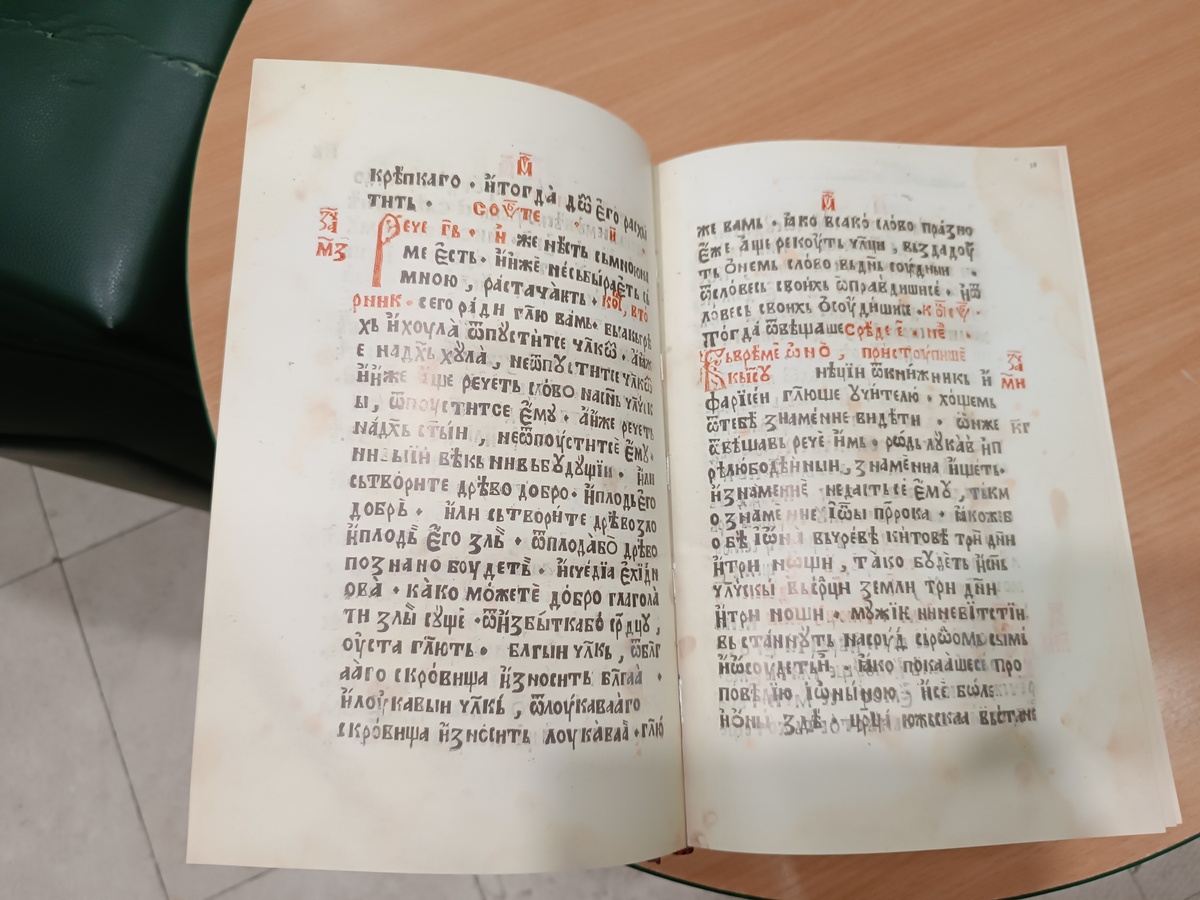 м҃
крѣпкаго · и҆тогда̀ дѿ є҆го расхы
тить ·
соу́те · и҃
за҃
м҃з
Рече г҃ь · и҆ же нѣсть сьмною на
ме є҆сть · и҆ижѐ несьбыраѥть сь
мною , растача́кть · ко҃, вто
рник · сего ра́ди гл҃ю вамь · вьсакь грѣ
хь и҆хоула̀ ѿпусти́тсе чл҃кѡ҃ · а҆ и҆же
е на дх҃ь хула̀ , неѿпуститсе чл҃кѡ҃
и҆ и҆же а҆ще речеть сло́во на сн҃ь чл҃чьск
ы , ѿпоуститсе є҆му · а҆ и҆же речеть
на дх҃ь ст҃ын , неѿпоу́ститсе є҆му ·
ни вь сїи вѣкь ни вьбудущїи · и҆ли
сьтвори́те дрѣво добро · и҆плодь є҆го
добрь · и҆ли сьтвори́те дрѣво зло
и҆плодь̀ є҆го зль · ѿплода бо̀ дрѣво
познано боудеть̀ · и҆счедїа є҆хїдн
ова̀ · ка̀ко мо́жетѐ добро глагола
ти злы̀ сущѐ · ѿ и҆збы́тка бо ср҃дцу ,
оу҆ста гл҃ють · бл҃гын чл҃кь , ѿбл҃г
ааго скро́вища и҆зно́сить бл҃гаа ·
и҆лоу́кавын чл҃кь , ѿлоу́каваго
скро́вища и҆зно́сить лоука́ваа · гл҃ю
и҃
же вамь · ꙗ҆ко всако̀ сло́во пра́зно
є҆же а҆ще рекоу́ть чл҃ци , вьздадоу҃
ть ѡ҆ немь сло́во вьдн҃ь соудныи ·
ѿсло́весь свои́хь ѡ҆правди́шисе · и҆ѿ
ловесь своихь ѡ҆соу́дишисе · ко҃
Тогда ѿвѣщаше срѣде е҃ · не҃
Вьврѣме ѡ҆но̀ , пристоупишѐ
за҃
м҃и
кьі҆су нѣцїи ѿкни́жникь и҆
фарїсеи гл҃юще учи́телю · хо́щемь
ѿтебѣ зна́мение видѣти · ѡ҆н же
к҃г
ѿвѣщавь рече и҆мь · ро́дь лука́вь и҆п
рѣлюбодѣ́инын , знаме́ниа и҆щеть ·
и҆знамениѐ недастьсе є҆му , ткм
о зна́мение і҆ѡны пр҃рока · ꙗ҆коже б
о бѣ і҆ѡ́на вьчрѣвѣ ки́товѣ три дн҃и
и҆три но́щи , та́ко бу́деть и҆сн҃ь
чл҃чьскы̀ вьср҃ци земли три дн҃и
и҆три нощи · му́жїе ниневїтсти
вьста́нуть на соуд сьро́ѡмь симь
и҆ѡ҆соудеть и҆ · ꙗ҆ко покаашесе про
повѣ́їю і҆ѡ́ныною · и҆сѐ бо́ле
и҆ѡ́ны здѣ̀ · цр҃ца южьскаа вьстане